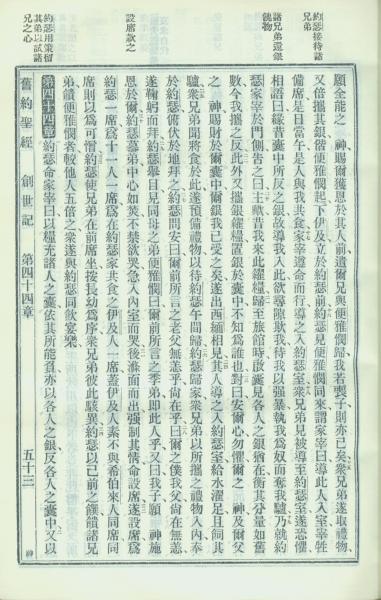 約瑟接待諸
兄弟
諸兄弟還銀
餽物
設席款之
約瑟用策留
其弟以試諸
兄之心
願全能之 神賜爾獲恩於其人前遣爾兄與便雅憫歸我若喪子則亦已矣衆兄弟遂取禮物、
又倍攜其銀偕便雅憫起下伊及立於約瑟前約瑟見便雅憫同來謂家宰曰導此人入室宰牲
備席是日當午是人與我共食家宰遵命而行導之入約瑟室衆兄弟見被導至約瑟室遂恐懼
相語曰緣昔囊中所反之銀故導我入此欲尋隙欺我待我以強暴執我爲奴而奪我驢乃就約
瑟家宰於門側告之曰主歟昔我來此糴糧歸至旅館時啟囊見各人之銀猶在衡其分量如舊
數今我攜之反此外又攜銀糴糧置銀於囊中不知爲誰也對曰安爾心勿懼爾之 神及爾父
之 神賜財於爾囊中爾銀我已受之矣遂出西緬相見其人導之入約瑟室給水濯足且飼其
驢衆兄弟聞將食於此遂預備禮物以待約瑟午間歸約瑟歸家衆兄弟以所攜之禮物入內奉
於約瑟俯伏於地拜之約瑟問安曰爾前所言之老父無恙乎尙在乎曰爾之僕我父尙在無恙
遂鞠躬而拜約瑟舉目見同母之弟便雅憫曰爾前所言之季弟即此人乎又曰我子願 神施
恩於爾約瑟慕弟中心如焚不禁欲哭急入內室而哭後滌面而出強制其情命設席遂設席爲
約瑟一席爲十一人一席爲在約瑟家共食之伊及人一席蓋伊及人素不與希伯來人同席同
席則以爲可憎約瑟使兄弟在前席坐按長幼爲序衆兄弟彼此駭異約瑟以己前之饌饋諸兄
弟饋便雅憫者較他人五倍之衆遂與約瑟同飲宴樂、
第四十四章 約瑟命家宰曰以糧充諸人之囊依其所能負亦以各人之銀反各人之囊中又以
舊約聖經 創世記 第四十四章 五十三